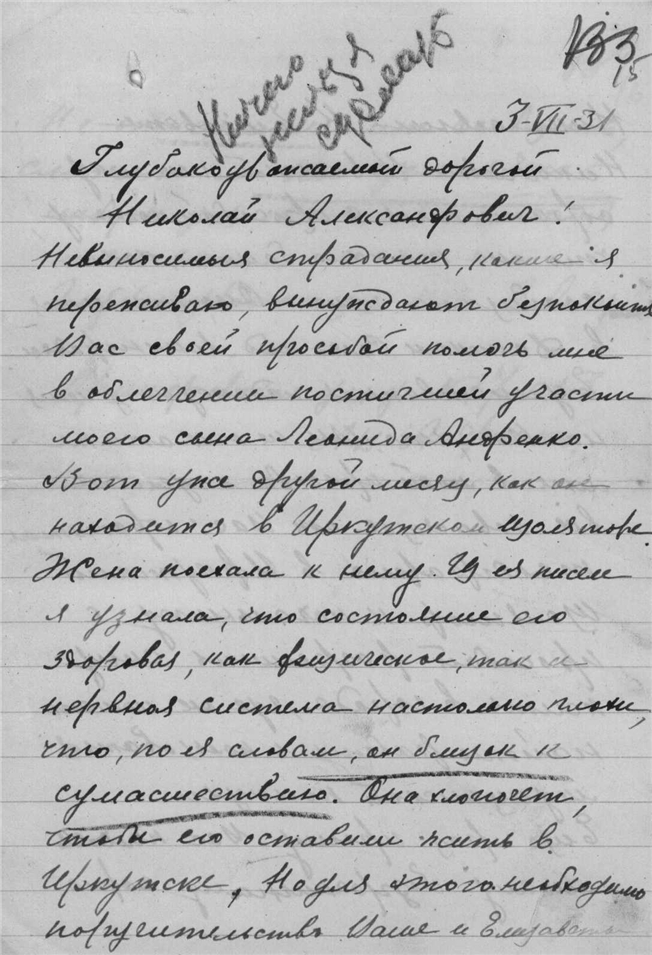 Ничего
нельзя
сделать
В3
15
3-VII-31
Глубокоуважаемый дорогой
Николай Александрович!
Невыносимыя страдания, какие я
переживаю, вынуждают безпокоить
Вас своей прособой помочь мне
в облегчении постигшей участи
моего сына Леонида Андренко.
Вот уже другой месяц, как он
находится в Иркутском изоляторе.
Жена поехала к нему. Из ея писем
я узнала, что состояние его
здоровья, как физическое, так и
нервная система настолько плохи,
что, по ея словам, он близок к
сумасшествию. Она хлопочет,
чтобы его оставили жить в
Иркутске, Но для этого необходимо
поручительство Ваше и Елизаветы